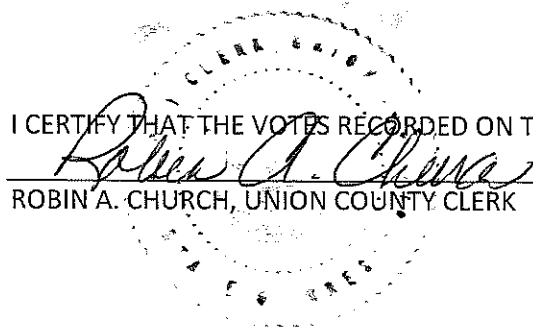 I CERTIFY THAT THE VOTES RECORDED ON T
Robin A. Church
ROBIN A. CHURCH, UNION COUNTY CLERK
CLERK